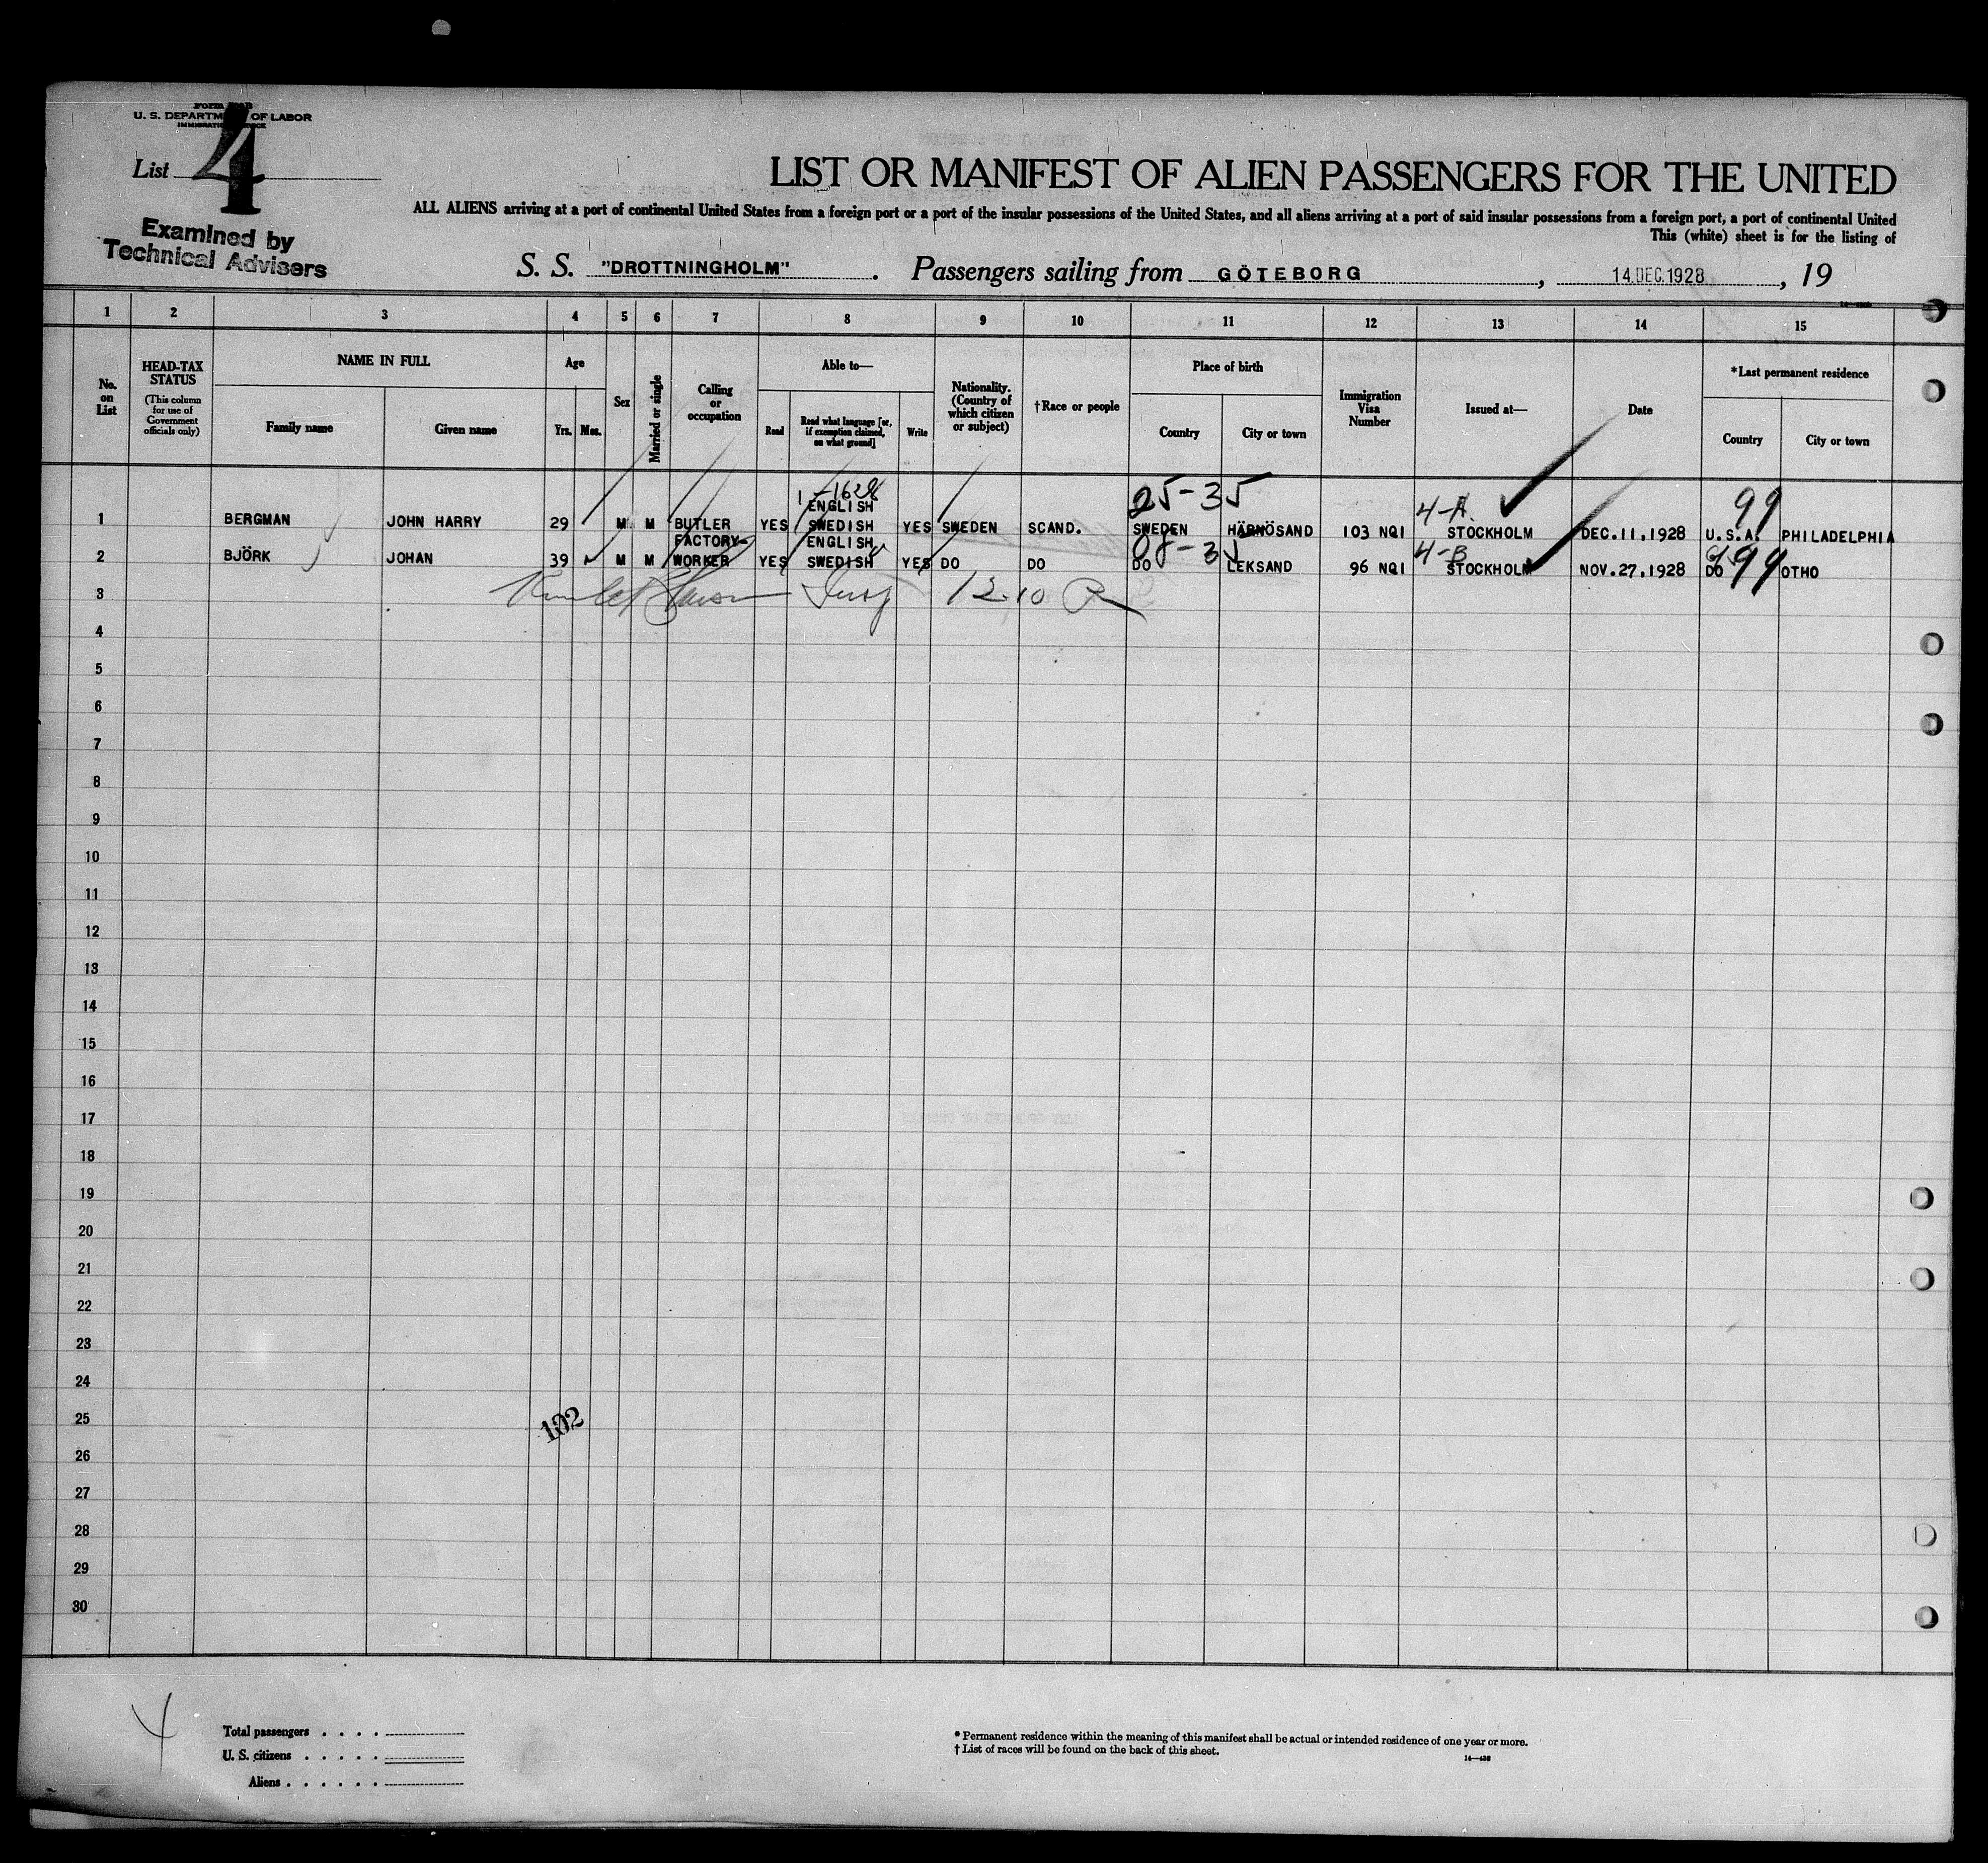 U. S. DEPARTMENT OF LABOR
List 4
Examined by
Technical Advisers
LIST OR MANIFEST OF ALIEN PASSENGERS FOR THE UNITED
ALL ALIENS arriving at a port of continental United States from a foreign port or a port of the insular possessions of the United States, and all aliens arriving at a port of said insular possessions from a foreign port, a port of continental United
This (white) sheet is for the listing of
S. S. "DROTTNINGHOLM". Passengers sailing from GÖTEBORG, 14.DEC.1928, 19
1 2 3 4 5 6 7 8 9 10 11 12 13 14 15
No. on List
HEAD-TAX STATUS
(This column for use of Government officials only)
NAME IN FULL
Family name
Given name
Age
Yrs. Mos.
Sex
Married or single
Calling or occupation
Able to—
Read
Read what language [or, if exemption claimed, on what ground]
Write
Nationality. (Country of which citizen or subject)
†Race or people
Place of birth
Country
City or town
Immigration Visa Number
Issued at—
Date
*Last permanent residence
Country
City or town
1-1628
25-35
4-A
99
ENGLISH
1 BERGMAN JOHN HARRY 29 M M BUTLER YES SWEDISH YES SWEDEN SCAND. SWEDEN HÄRNÖSAND 103 NQI STOCKHOLM DEC.11,1928 U.S.A. PHILADELPHIA
FACTORY- ENGLISH
4-B
99
2 BJÖRK JOHAN 39 M M WORKER YES SWEDISH YES DO DO DO LEKSAND 96 NQI STOCKHOLM NOV.27,1928 DO OTHO
3
12.10
4
5
6
7
8
9
10
11
12
13
14
15
16
17
18
19
20
21
22
23
24
25
102
26
27
28
29
30
4
Total passengers . . . .
U. S. citizens . . . . .
Aliens . . . . . .
* Permanent residence within the meaning of this manifest shall be actual or intended residence of one year or more.
† List of races will be found on the back of this sheet.